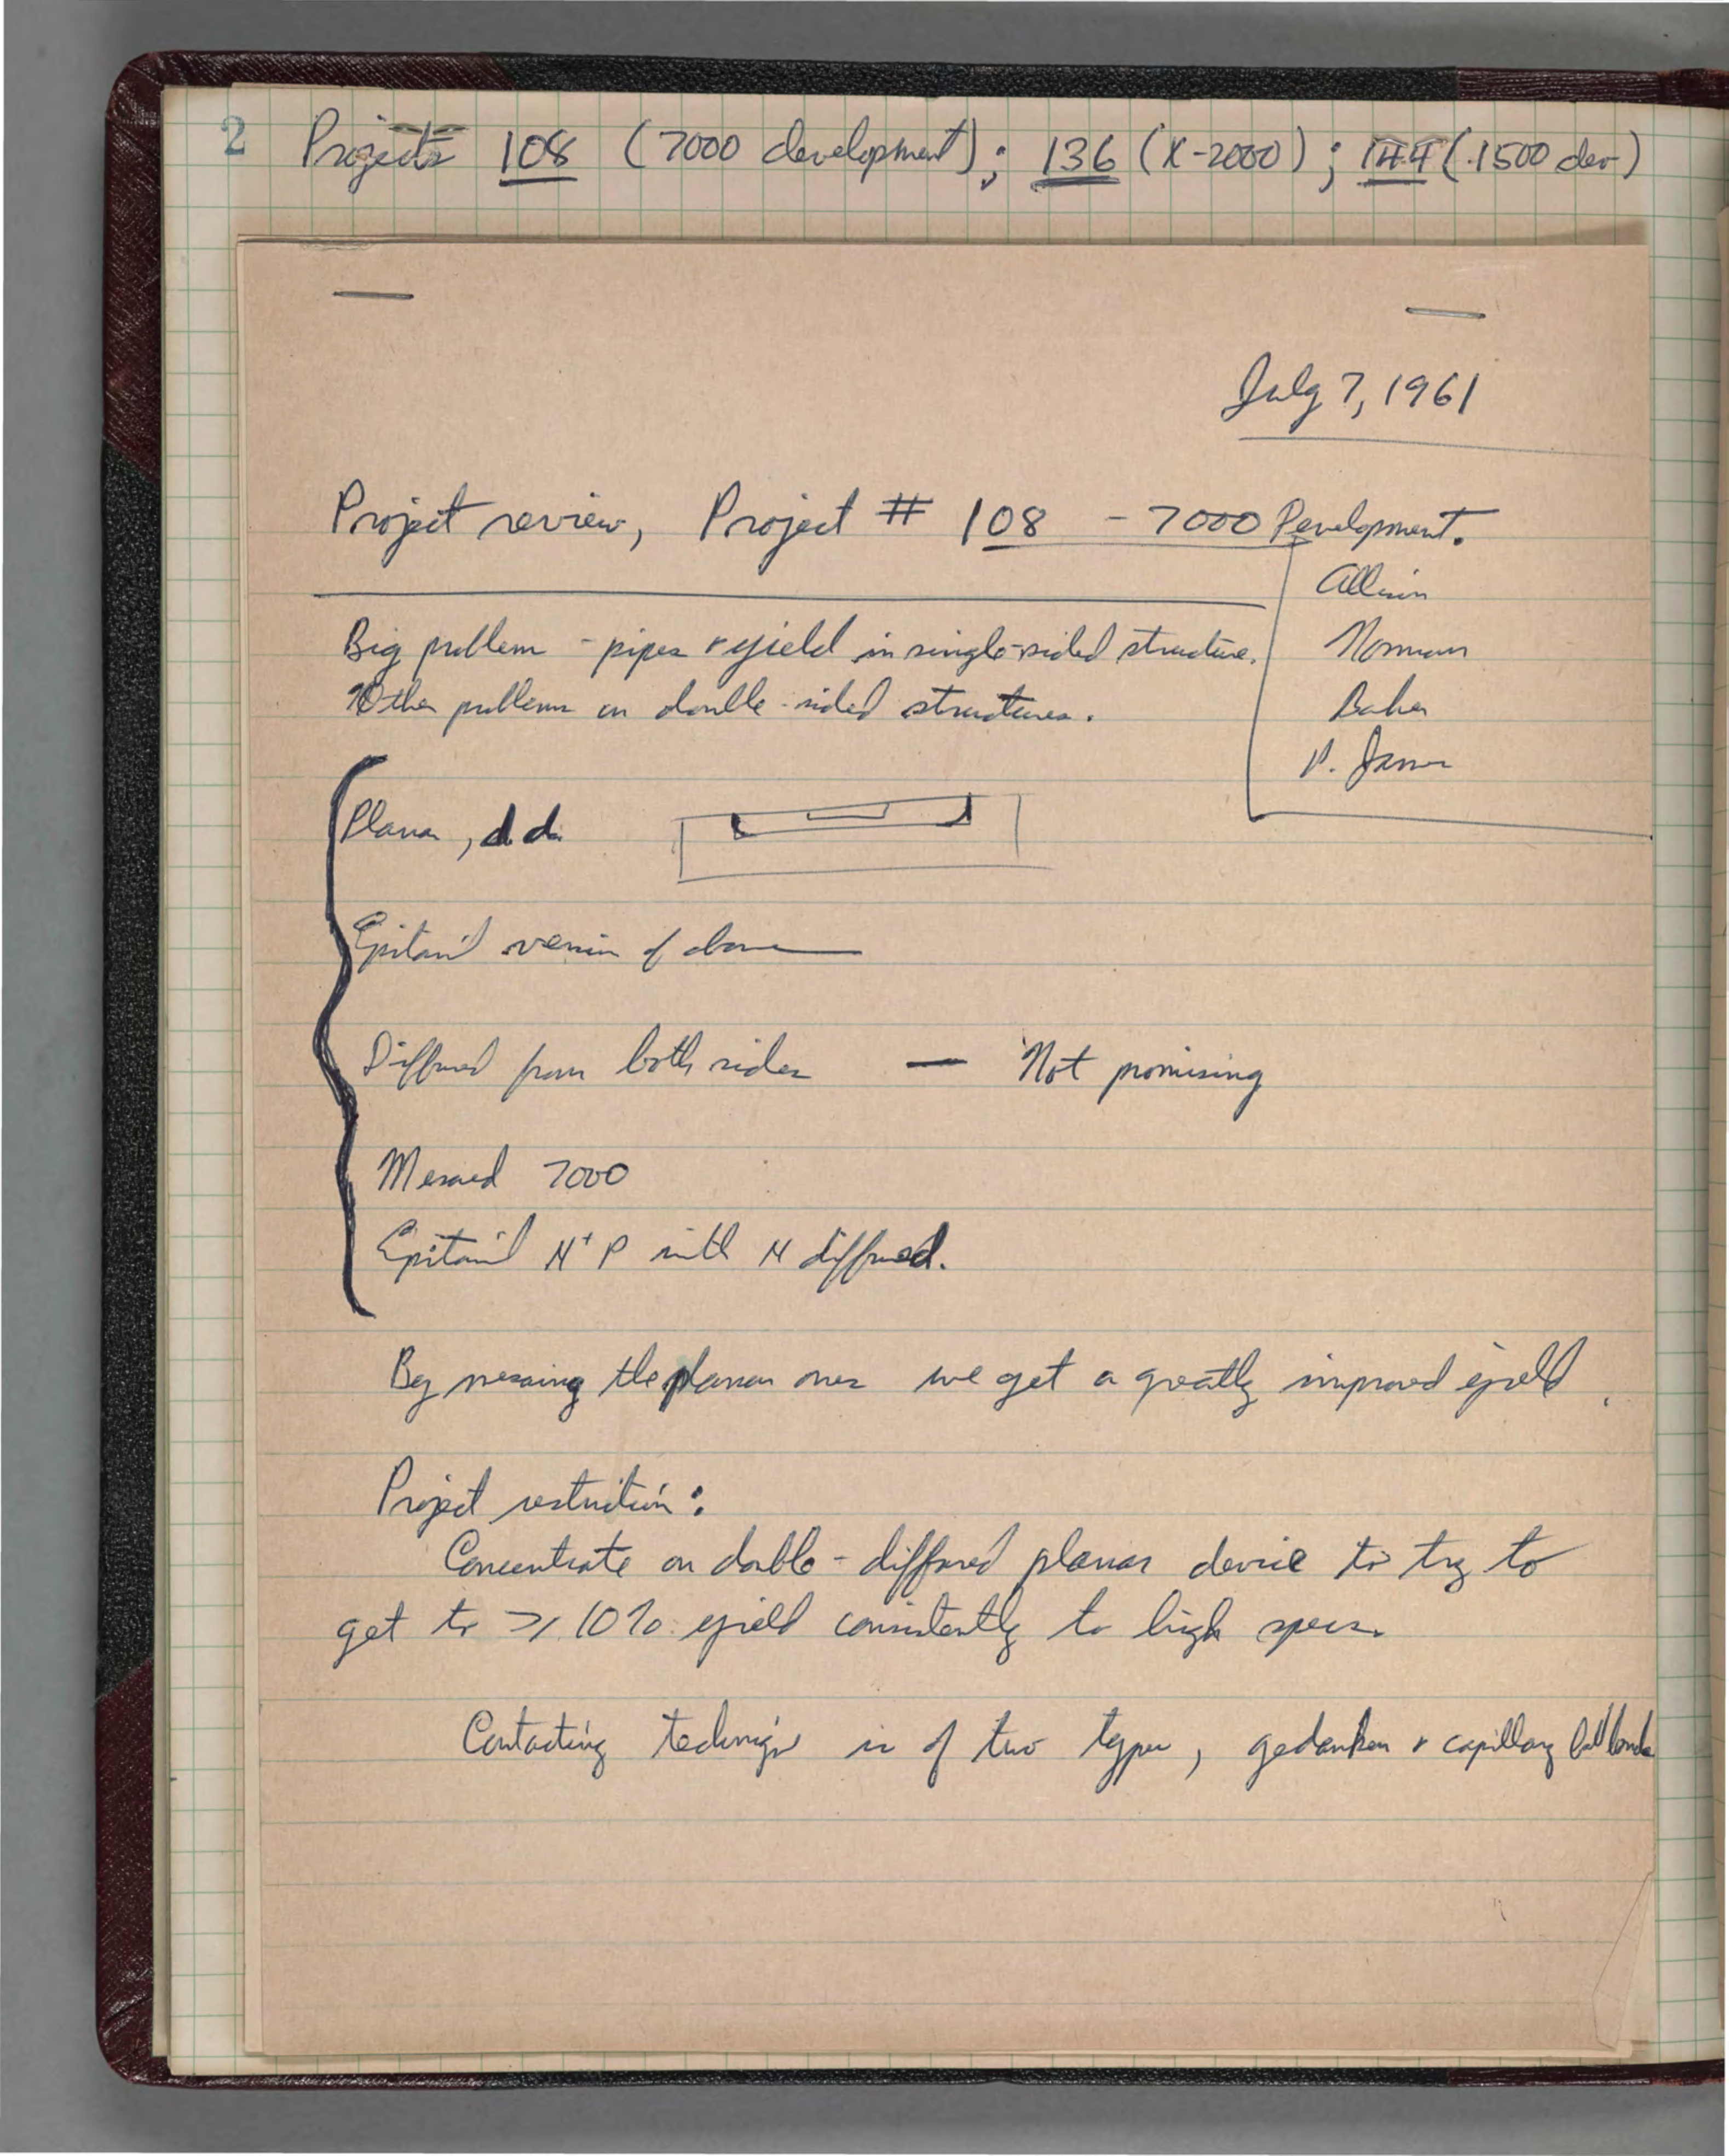 2 Projects 108 (7000 development); 136 (X-2000); 144 (1500 dev)
July 7, 1961
Project review, Project # 108 - 7000 Development.
Allison
Norman
Baker
P. James
Big problem - pipes & yield in single-sided structure.
Other problems on double-sided structures.
Planar, d.d.
Epitaxial version of above
Diffused from both sides — Not promising
Mesaed 7000
Epitaxial N+ P with N diffused.
By mesaing the planar ones we get a greatly improved yield.
Project restriction:
Concentrate on double-diffused planar device to try to
get to ≥ 10% yield consistently to high specs.
Contacting technique is of two types, gedanken & capillary ball bonds